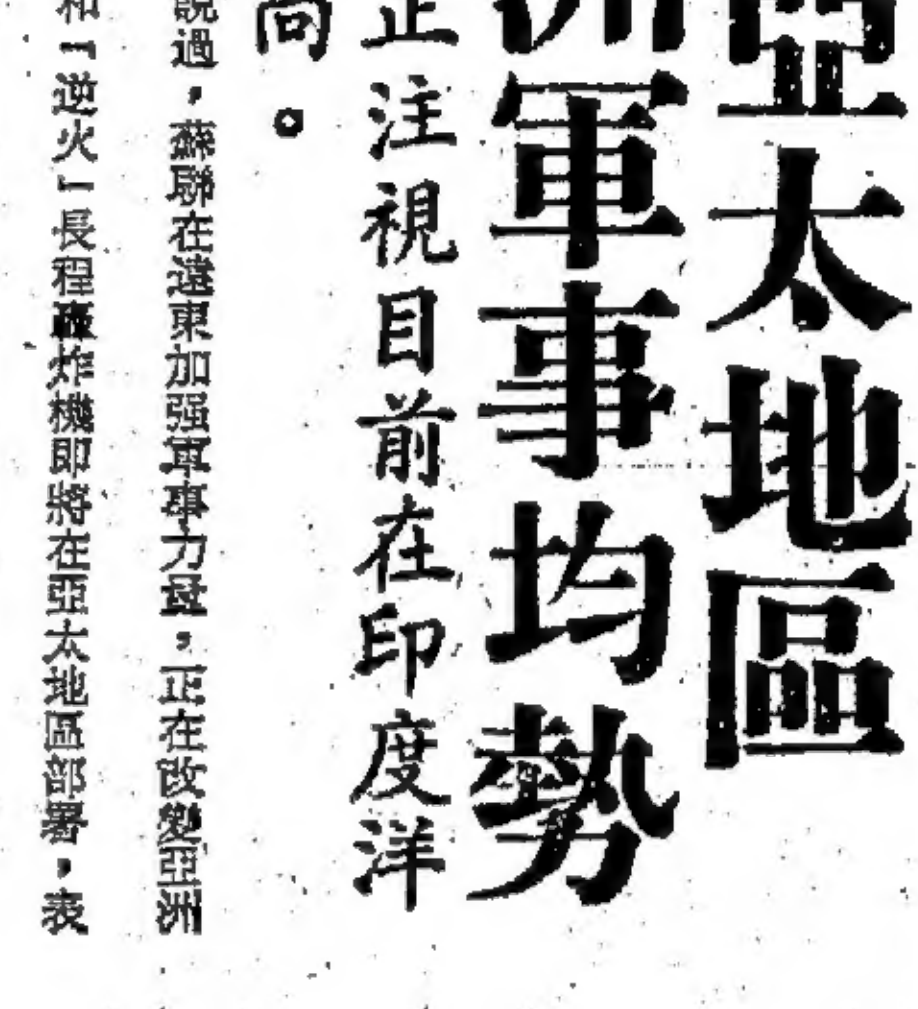 亞太地區
洲軍事均勢
正注視目前在印度洋
向。
說過，蘇聯在遠東加强軍事力量，正在改變亞洲
和「逆火」長程轟炸機即將在亞太地區部署，表